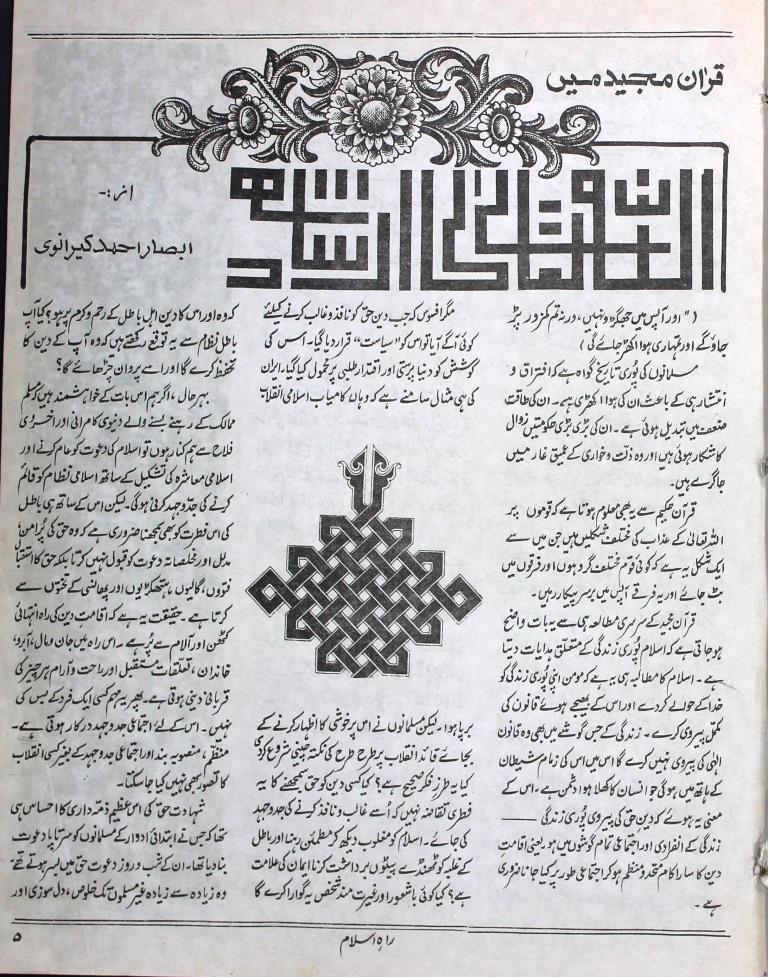 قرآن مجید میں
از:-
ابصار احمد کیرانوی
("اور آپس میں جھگڑو نہیں، ورنہ تم کمزور پڑ
جاؤ گے اور تمہاری ہوا اکھڑ جائے گی)
مسلمانوں کی پوری تاریخ گواہ ہے کہ افتراق و
انتشار ہی کے باعث ان کی ہوا اکھڑی ہے۔ ان کی طاقت
ضعف میں تبدیل ہوئی ہے۔ ان کی بڑی بڑی حکومتیں زوال
کا شکار ہوئی ہیں اور وہ ذلت و خواری کے عمیق غار میں
جا گرے ہیں۔
قرآن حکیم سے یہ بھی معلوم ہوتا ہے کہ قوموں پر
اللہ تعالیٰ کے عذاب کی مختلف شکلیں ہیں جن میں سے
ایک شکل یہ ہے کہ کوئی قوم مختلف گروہوں اور فرقوں میں
بٹ جائے اور یہ فرقے آپس میں برسرِ پیکار رہیں۔
قرآن مجید کے سرسری مطالعہ ہی سے یہ بات واضح
ہو جاتی ہے کہ اسلام پوری زندگی کے متعلق ہدایات دیتا
ہے۔ اسلام کا مطالبہ ہی یہ ہے کہ مومن اپنی پوری زندگی کو
خدا کے حوالے کر دے اور اس کے بھیجے ہوئے قانون کی
مکمل پیروی کرے۔ زندگی کے جس گوشے میں بھی وہ قانون
الٰہی کی پیروی نہیں کرے گا اس میں اس کی زمام شیطان
کے ہاتھ میں ہوگی جو انسان کا کھلا ہوا دشمن ہے۔ اس کے
معنی یہ ہوئے کہ دین حق کی پیروی پوری زندگی ——
زندگی کے انفرادی اور اجتماعی تمام گوشوں میں ہو۔ یعنی اقامتِ
دین کا سارا کام متحد و منظم ہو کر اجتماعی طور پر کیا جانا ضروری
ہے۔
مگر افسوس کہ جب دین حق کو نافذ و غالب کرنے کیلئے
کوئی آگے آیا تو اس کو "سیاست" قرار دیا گیا۔ اس کی
کوشش کو دنیا پرستی اور اقتدار طلبی پر محمول کیا گیا۔ ایران
کی ہی مثال سامنے ہے کہ وہاں کا کامیاب اسلامی انقلاب
برپا ہوا۔ لیکن مسلمانوں نے اس پر خوشی کا اظہار کرنے کے
بجائے قائد انقلاب پر طرح طرح کی نکتہ چینی شروع کر دی
کیا یہ طرزِ فکر صحیح ہے؟ کیا کسی دین کو حق سمجھنے کا یہ
فطری تقاضہ نہیں کہ اُسے غالب و نافذ کرنے کی جدوجہد
کی جائے۔ اسلام کو مغلوب دیکھ کر مطمئن رہنا اور باطل
کے غلبہ کو ٹھنڈے پیٹوں برداشت کرنا ایمان کی علامت
ہے؟ کیا کوئی باشعور اور غیرت مند شخص یہ گوارا کرے گا
کہ وہ اور اس کا دین اہل باطل کے رحم و کرم پر ہو؟ کیا آپ
باطل نظام سے یہ توقع رکھتے ہیں کہ وہ آپ کے دین کا
تحفظ کرے گا اور اسے پروان چڑھائے گا؟
بہرحال، اگر ہم اس بات کے خواہشمند ہیں کہ مسلم
ممالک کے رہنے بسنے والے دنیوی کامرانی اور اخروی
فلاح سے ہمکنار ہوں تو اسلام کی دعوت کو عام کرنے اور
اسلامی معاشرہ کی تشکیل کے ساتھ اسلامی نظام کو قائم
کرنے کی جدوجہد کرنی ہوگی۔ لیکن اس کے ساتھ ہی باطل
کی اس فطرت کو بھی سمجھنا ضروری ہے کہ وہ حق کی پُر امن،
مدلل اور مخلصانہ دعوت کو قبول نہیں کرتا بلکہ حق کا استقبال
فتووں، گالیوں، ہتھکڑیوں اور پھانسی کے تختوں سے
کرتا ہے۔ حقیقت یہ ہے کہ اقامتِ دین کی راہ انتہائی
کٹھن اور آلام سے پُر ہے۔ اس راہ میں جان و مال، آبرو،
خاندان، تعلقات، مستقبل اور راحت و آرام ہر چیز کی
قربانی دینی ہوتی ہے۔ پھر یہ مہم کسی ایک فرد کے بس کی
نہیں۔ اس کے لئے اجتماعی جدوجہد درکار ہوتی ہے۔
منظم، منصوبہ بند اور اجتماعی جدوجہد کے بغیر کسی انقلاب
کا تصور بھی نہیں کیا جا سکتا۔
شہادت حق کی اس عظیم ذمہ داری کا احساس ہی
تھا کہ جس نے ابتدائی ادوار کے مسلمانوں کو سرتاپا دعوت
بنا دیا تھا۔ ان کے شب و روز دعوت حق میں بسر ہوتے تھے
وہ زیادہ سے زیادہ غیر مسلموں تک خلوص، دل سوزی اور
راہِ اسلام
۵